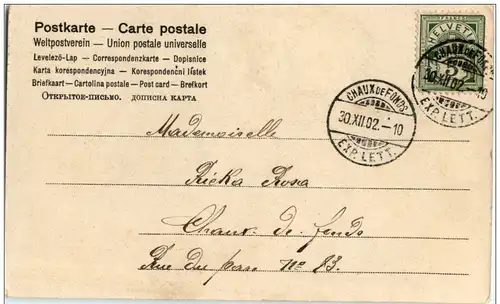 Postkarte — Carte postale
Weltpostverein — Union postale universelle
Levelező-Lap — Correspondenzkarte — Dopisnice
Karta korespondencyjna — Korespondenční lístek
Briefkaart — Cartolina postale — Post card — Brefkort
Открытое-письмо. дописна карта
FRANCO
HELVETIA
5
CHAUX DE FONDS
30.XII.02.–10
EXP. LETT.
CHAUX DE FONDS
30.XII.02.–10
EXP. LETT.
Mademoiselle
Ricka Rosa
Chaux. de. fonds
Rue du parc No 83.